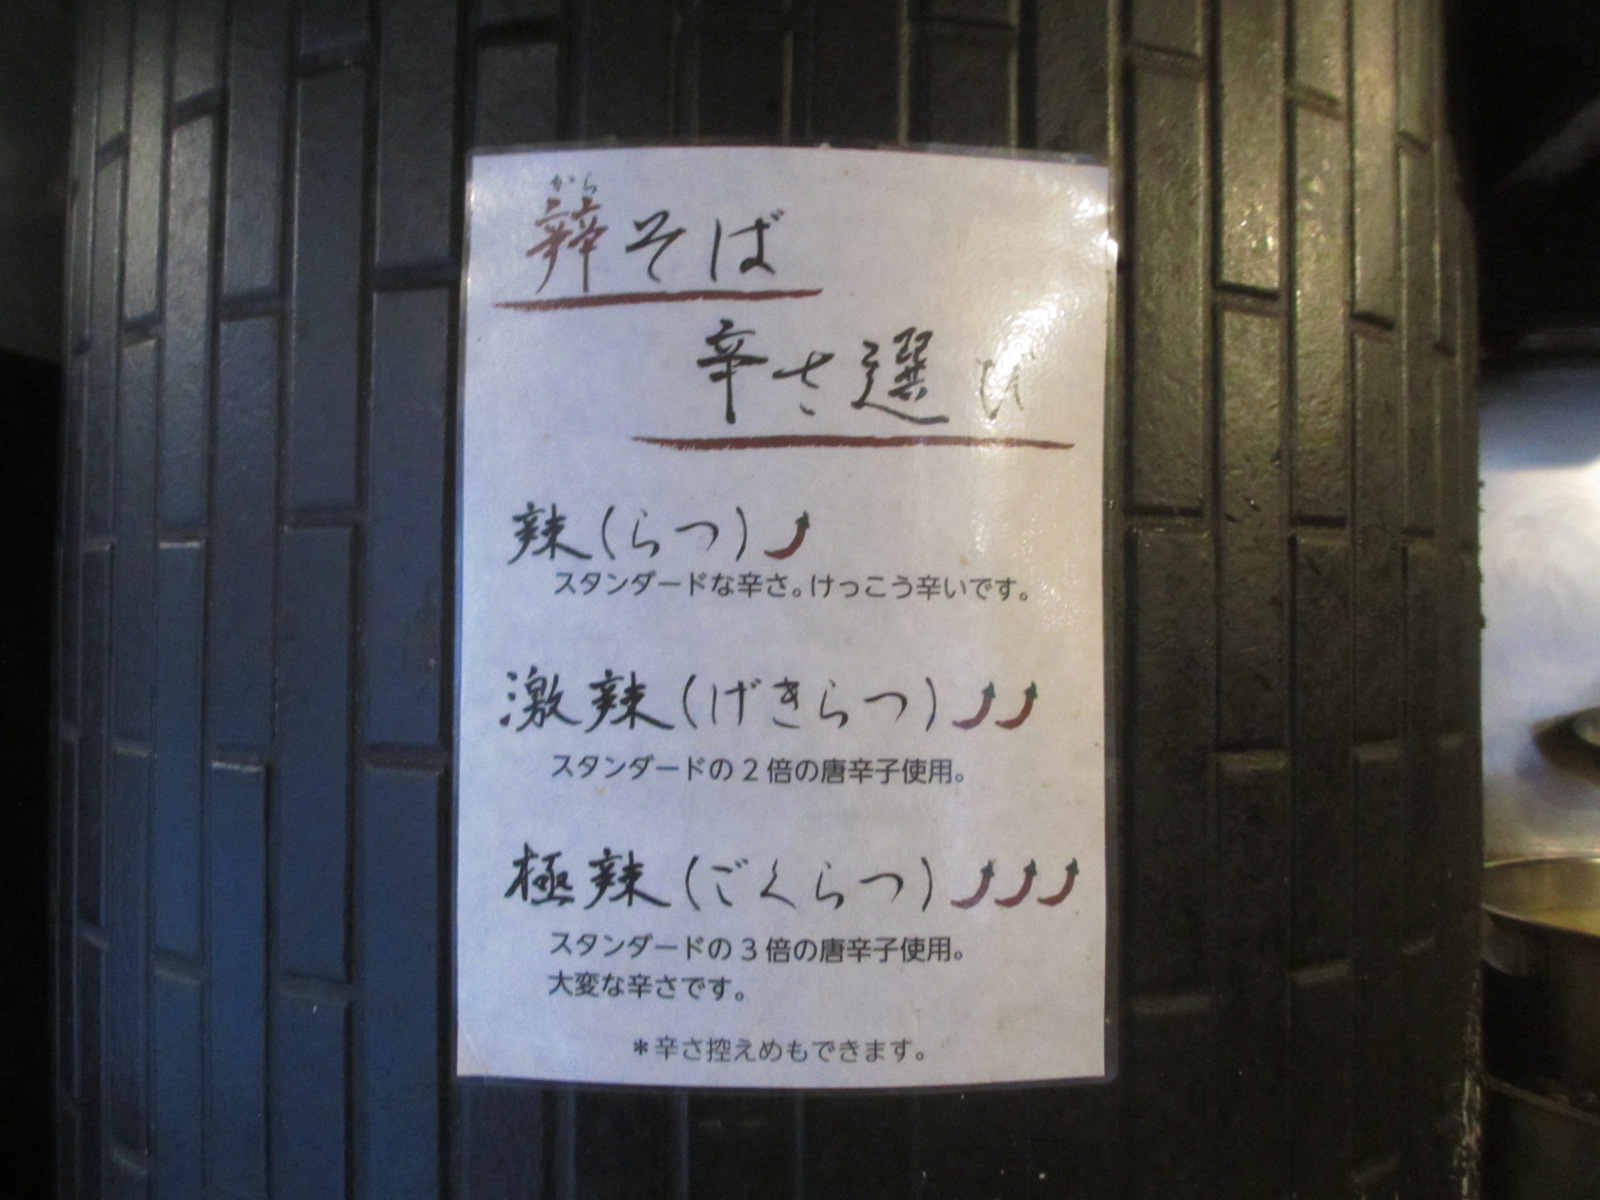 から
辡そば
辛さ選び
辣(らつ)
スタンダードな辛さ。けっこう辛いです。
激辣(げきらつ)
スタンダードの2倍の唐辛子使用。
極辣(ごくらつ)
スタンダードの3倍の唐辛子使用。
大変な辛さです。
*辛さ控えめもできます。